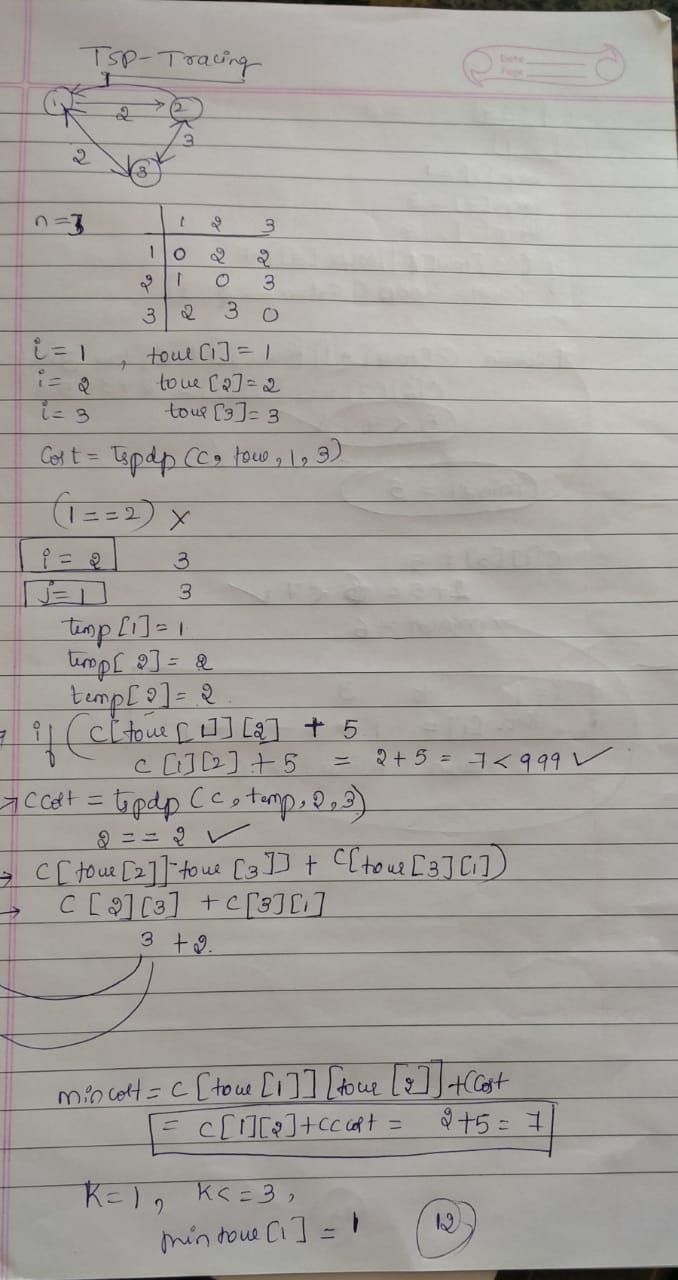 TSP-Tracing
Date
Page
1
1 2 2
2 3 3
n=3
1 2 3
1 0 2 2
2 1 0 3
3 2 3 0
i=1, tour[1]=1
i=2 tour[2]=2
i=3 tour[3]=3
Cost = tspdp(c, tour, 1, 3)
(1==2) x
i=2 3
j=1 3
temp[1]=1
temp[2]=2
temp[2]=2.
→ if (c[tour[1]][2] + 5
c[1][2]+5 = 2+5 = 7<999 ✓
→ ccost = tspdp(c, temp, 2, 3)
2==2 ✓
→ c[tour[2]][tour[3]] + c[tour[3][1])
→ c[2][3] + c[3][1]
3 + 2.
mincost = c[tour[1]][tour[2]]+Ccost
= c[1][2]+ccost = 2+5=7
K=1, K<=3,
mintour[1] = 1
12